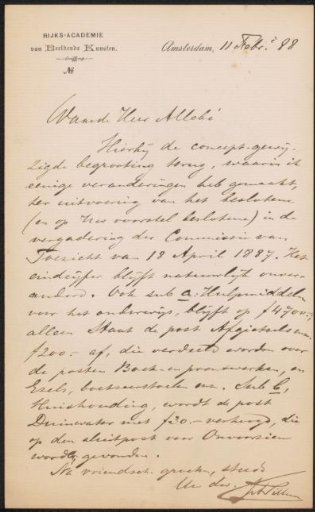 RIJKS-ACADEMIE
van Beeldende Kunsten.
№
Amsterdam, 11 Febr. 88
Waarde Heer Allebé
Hierbij de concept-gewij-
zigde begrooting terug, waarin ik
eenige veranderingen heb gemaakt,
ter uitvoering van het beslotene
(en op Uw voorstel beslotene) in de
vergadering der Commissie van
Toezicht van 18 April 1887. Het
eindcijfer blijft natuurlijk onver-
anderd. Ook sub a. Hulpmiddelen
voor het onderwijs, blijft op f 4700.-,
alleen staat de post Afgietsels en
f200.- af, die verdeeld worden over
de posten Boek- en prentwerken, en
Ezels, enz. Sub b,
Huishouding, wordt de post
Duinwater met f20.- verhoogd, die
op den sluitpost voor Onvoorzien
wordt gevonden.
Na vriendsch. groeten, steeds
Uw dw.